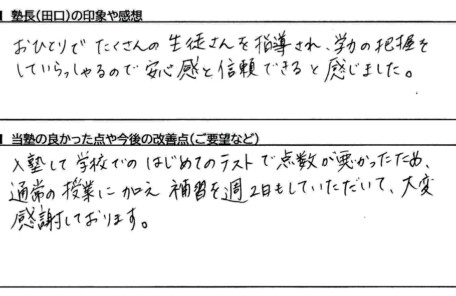 塾長(田口)の印象や感想
おひとりで たくさんの 生徒さんを 指導され、学力の把握を
していらっしゃるので 安心感と信頼できると感じました。
当塾の良かった点や今後の改善点(ご要望など)
入塾して 学校での はじめてのテストで 点数が悪かったため、
通常の授業に加え 補習を週2日もしていただいて、大変
感謝しております。